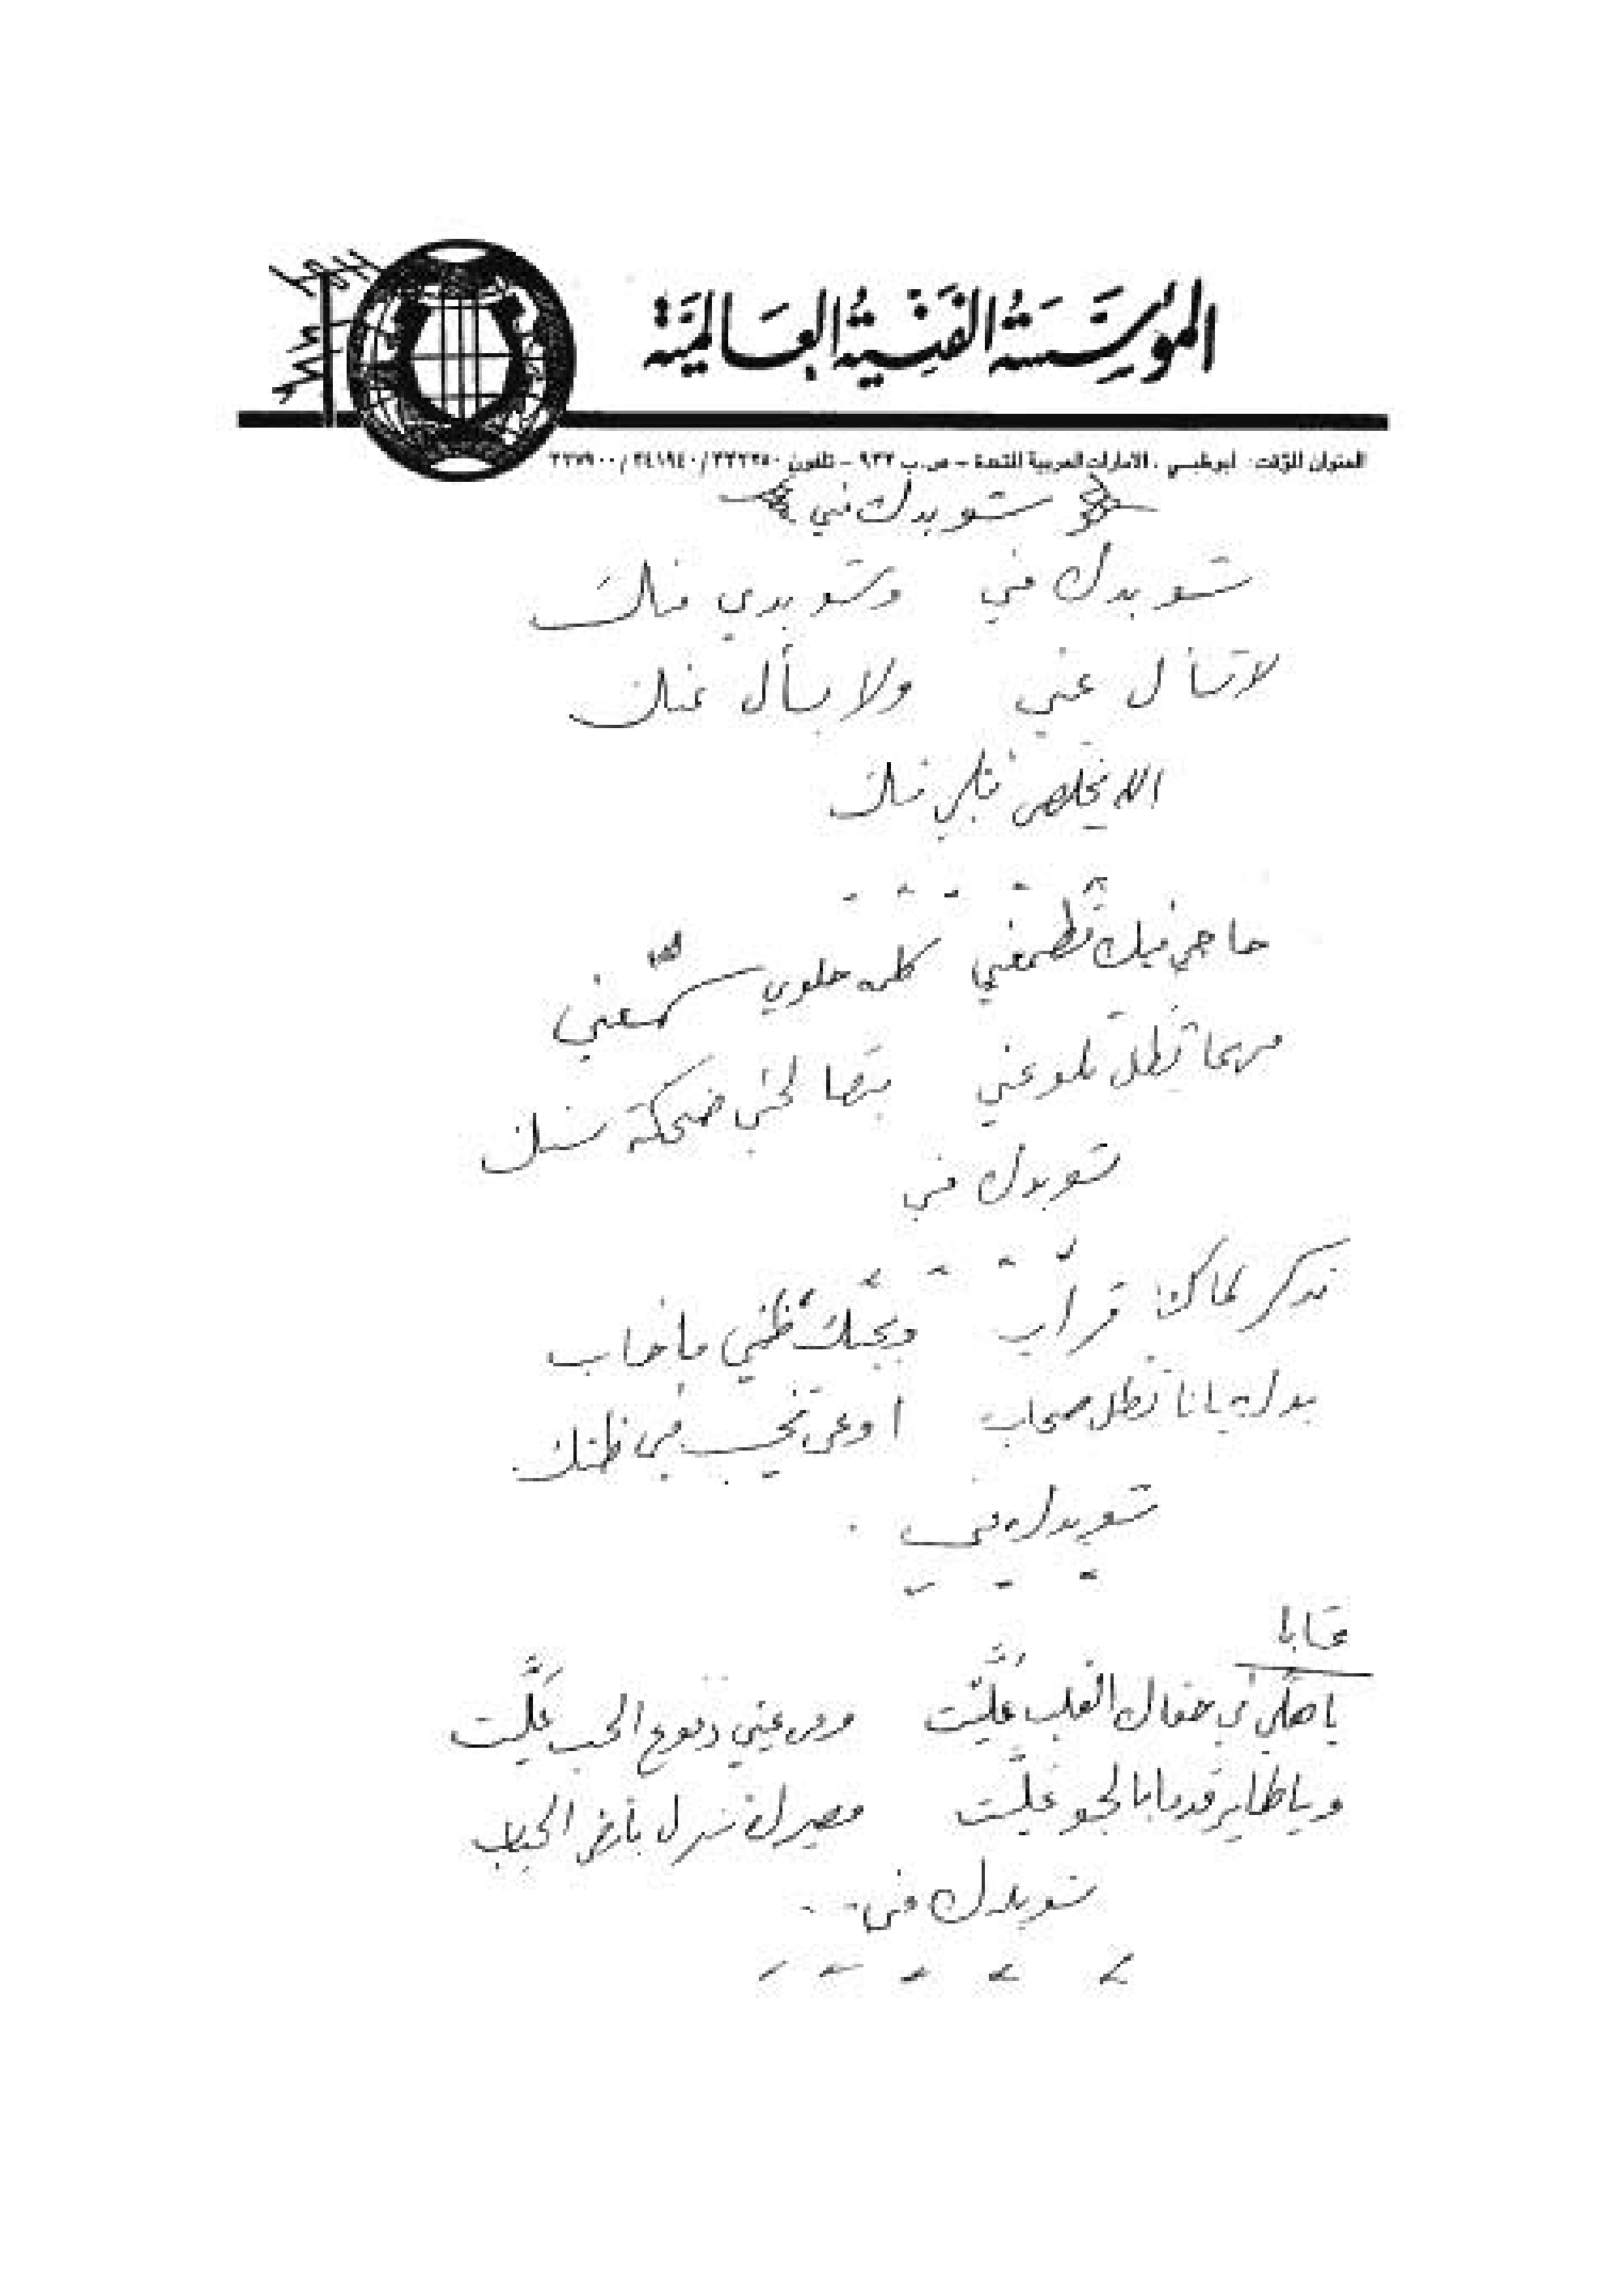 المؤسسة الفنية العالمية
العنوان المؤقت: أبوظبي . الامارات العربية المتحدة - ص.ب ٩٣٢ - تلفون ٣٣٢٢٥٠ / ٣٤١٩٤٠ / ٣٢٧٩٠٠
شو بدك مني
شو بدك مني وشو بدي منك
لا تسأل عني ولا بسأل عنك
الله يخلص قلبي منك
حاجي فيك تطمعني كلمه حلوي تسمّعني
مهما تظل تلوعني بتصالحني ضحكة سنك
شو بدك مني
تذكر لما كنا قراب وبحبك ظني ما خاب
بدك يانا نظل صحاب اوعى تخيب في ظنك
شو بدك مني
عتابا
القلب علّيت ومن عيني دموع الحب علّيت
ويا طاير بالجو علّيت مصيرك تنزل بأرض الحباب
شو بدك مني ..